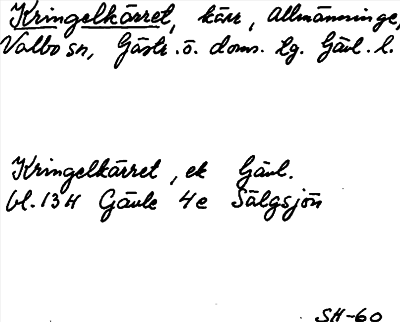 Kringelkärret, kärr, Allmänninge,
Valbo sn, Gästr. ö. doms. hg. Gävl. l.
Kringelkärret, ek Gävl.
bl. 13 H Gävle 4e Sälgsjön
SH-60